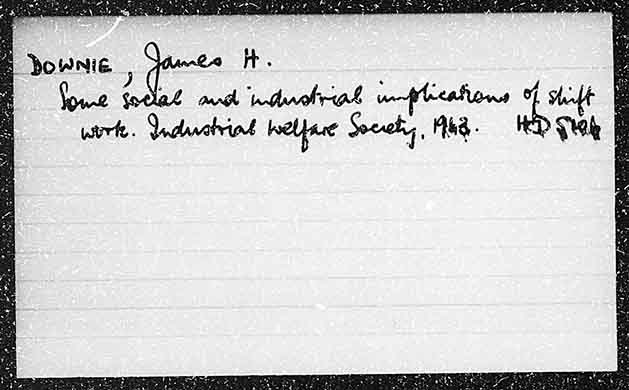 DOWNIE, James H.
Some social and industrial implications of shift
work. Industrial Welfare Society, 1963. HD